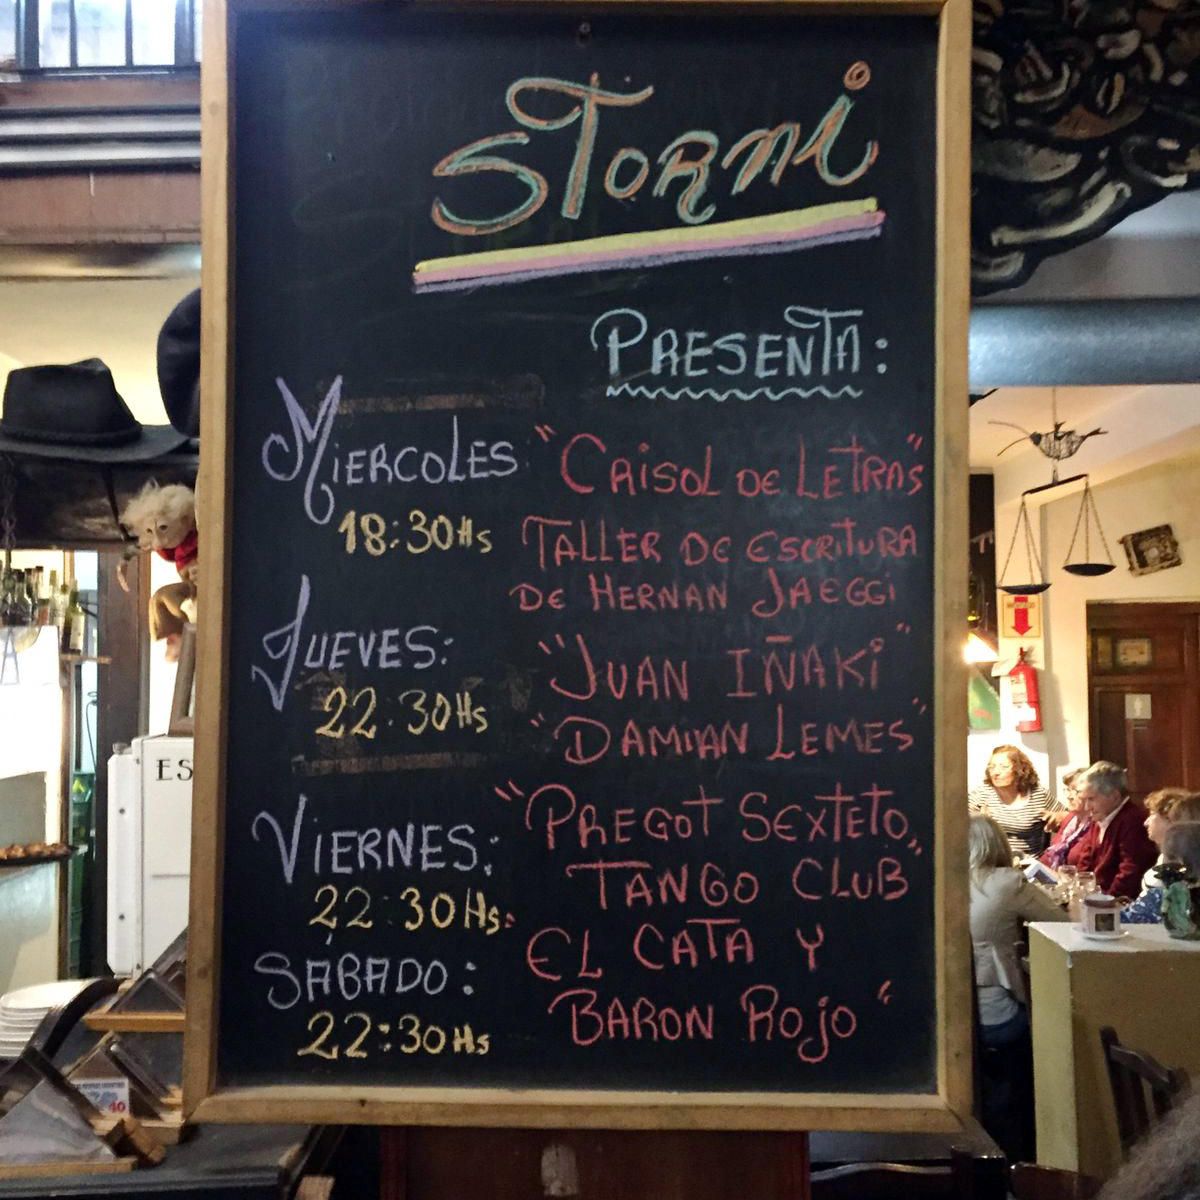 STORNI
PRESENTA:
MIERCOLES "CRISOL DE LETRAS"
18:30Hs TALLER DE ESCRITURA
DE HERNAN JAEGGI
JUEVES: "JUAN IÑAKI"
22:30Hs "DAMIAN LEMES"
VIERNES: "PREGOT SEXTETO"
22:30Hs: TANGO CLUB
SÁBADO: EL CATA Y
22:30Hs BARON ROJO"
ES
40